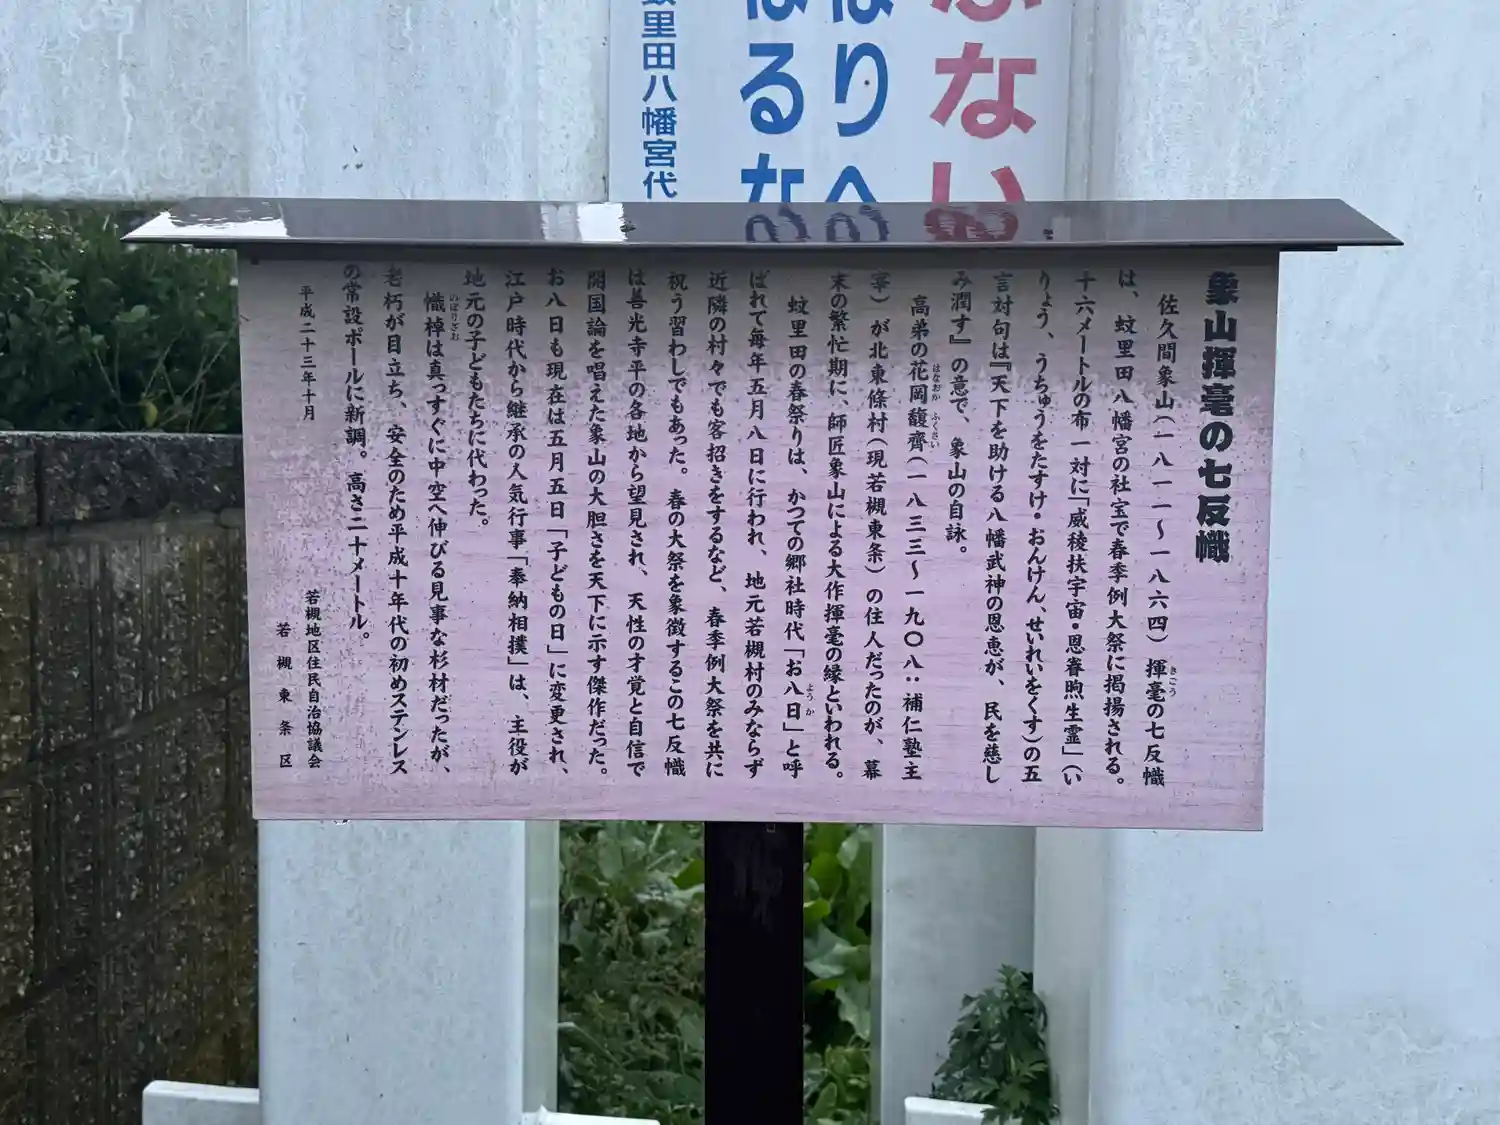 ぶない
ばりへ
なるな
蚊里田八幡宮代
象山揮毫の七反幟
佐久間象山（一八一一～一八六四）揮毫の七反幟
きごう
は、蚊里田八幡宮の社宝で春季例大祭に掲揚される。
十六メートルの布一対に「威稜扶宇宙・恩眷煦生霊」（い
りょう、うちゅうをたすけ・おんけん、せいれいをくす）の五
言対句は『天下を助ける八幡武神の恩恵が、民を慈し
み潤す』の意で、象山の自詠。
高弟の花岡馥齊（一八三三～一九〇八：補仁塾主
はなおか ふくさい
宰）が北東條村（現若槻東条）の住人だったのが、幕
末の繁忙期に、師匠象山による大作揮毫の縁といわれる。
蚊里田の春祭りは、かつての郷社時代「お八日」と呼
ようか
ばれて毎年五月八日に行われ、地元若槻村のみならず
近隣の村々でも客招きをするなど、春季例大祭を共に
祝う習わしでもあった。春の大祭を象徴するこの七反幟
は善光寺平の各地から望見され、天性の才覚と自信で
開国論を唱えた象山の大胆さを天下に示す傑作だった。
お八日も現在は五月五日「子どもの日」に変更され、
江戸時代から継承の人気行事「奉納相撲」は、主役が
地元の子どもたちに代わった。
幟棹は真っすぐに中空へ伸びる見事な杉材だったが、
のぼりざお
老朽が目立ち、安全のため平成十年代の初めステンレス
の常設ポールに新調。高さ二十メートル。
平成二十三年十月
若槻地区住民自治協議会
若槻東条区